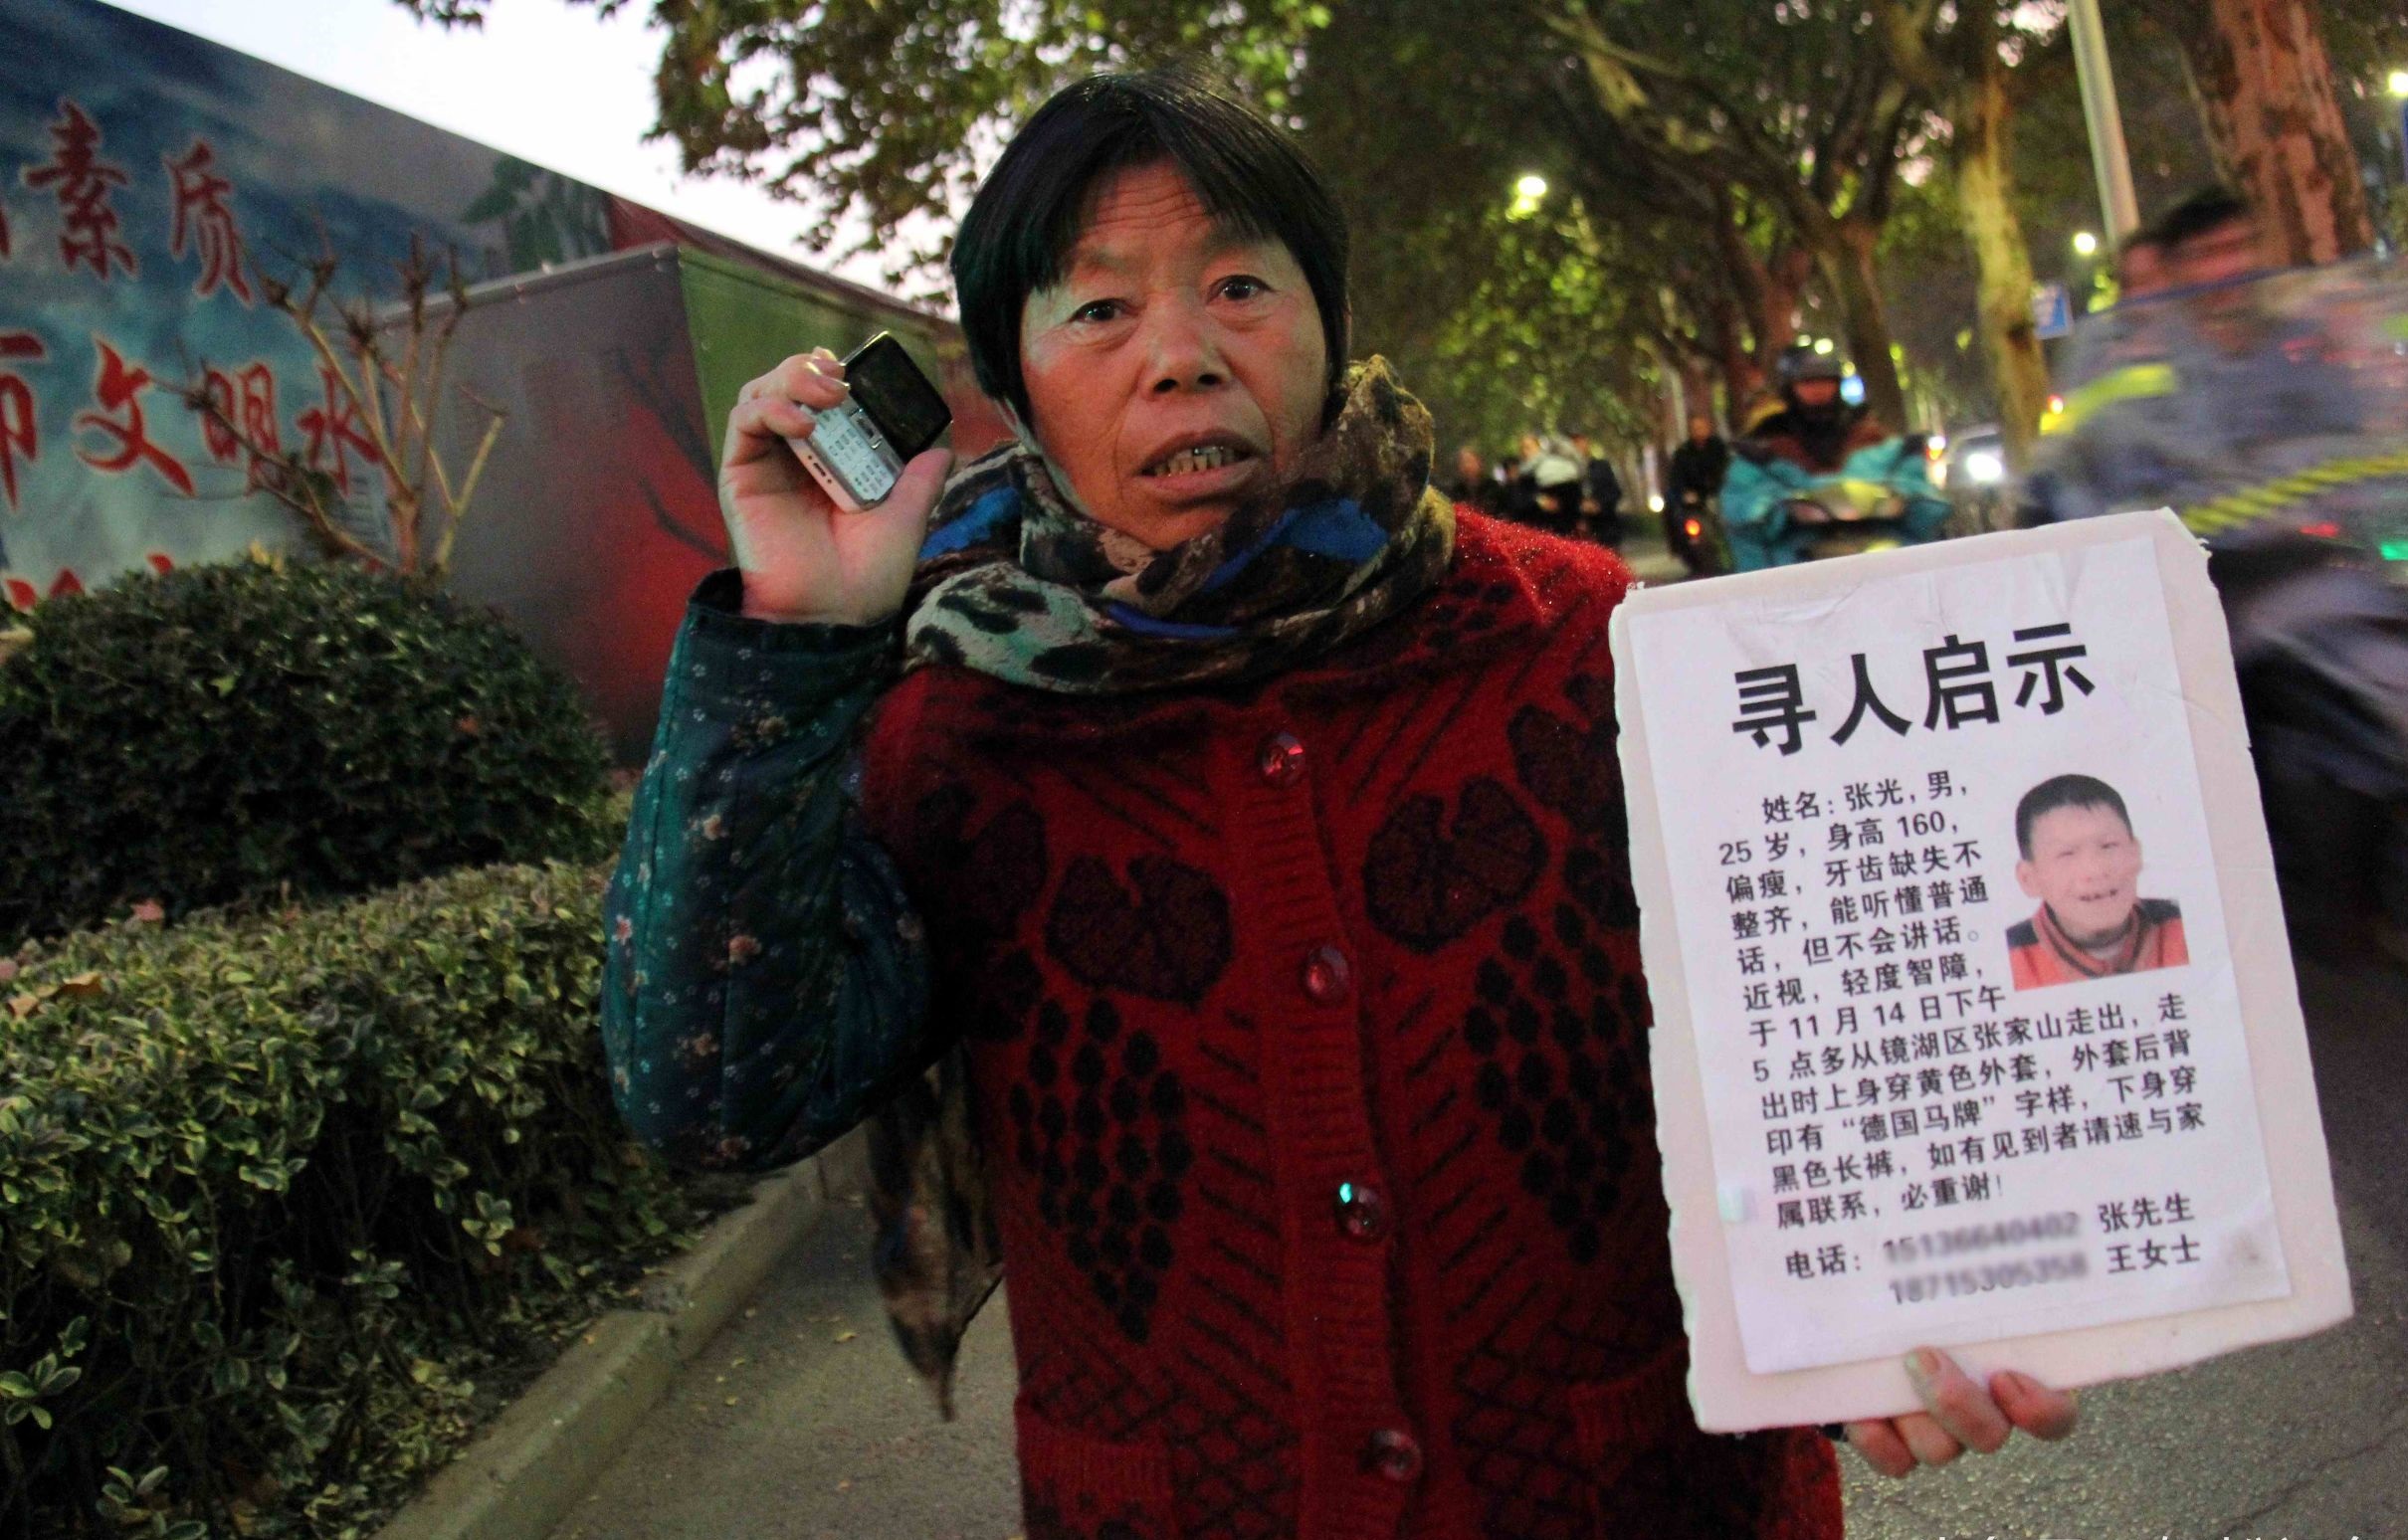 素质
市文明水
寻人启示
姓名：张光，男，
25 岁，身高 160，
偏瘦，牙齿缺失不
整齐，能听懂普通
话，但不会讲话。
近视，轻度智障，
于 11 月 14 日下午
5 点多从镜湖区张家山走出，走
出时上身穿黄色外套，外套后背
印有“德国马牌”字样，下身穿
黑色长裤，如有见到者请速与家
属联系，必重谢！
电话： 张先生
王女士